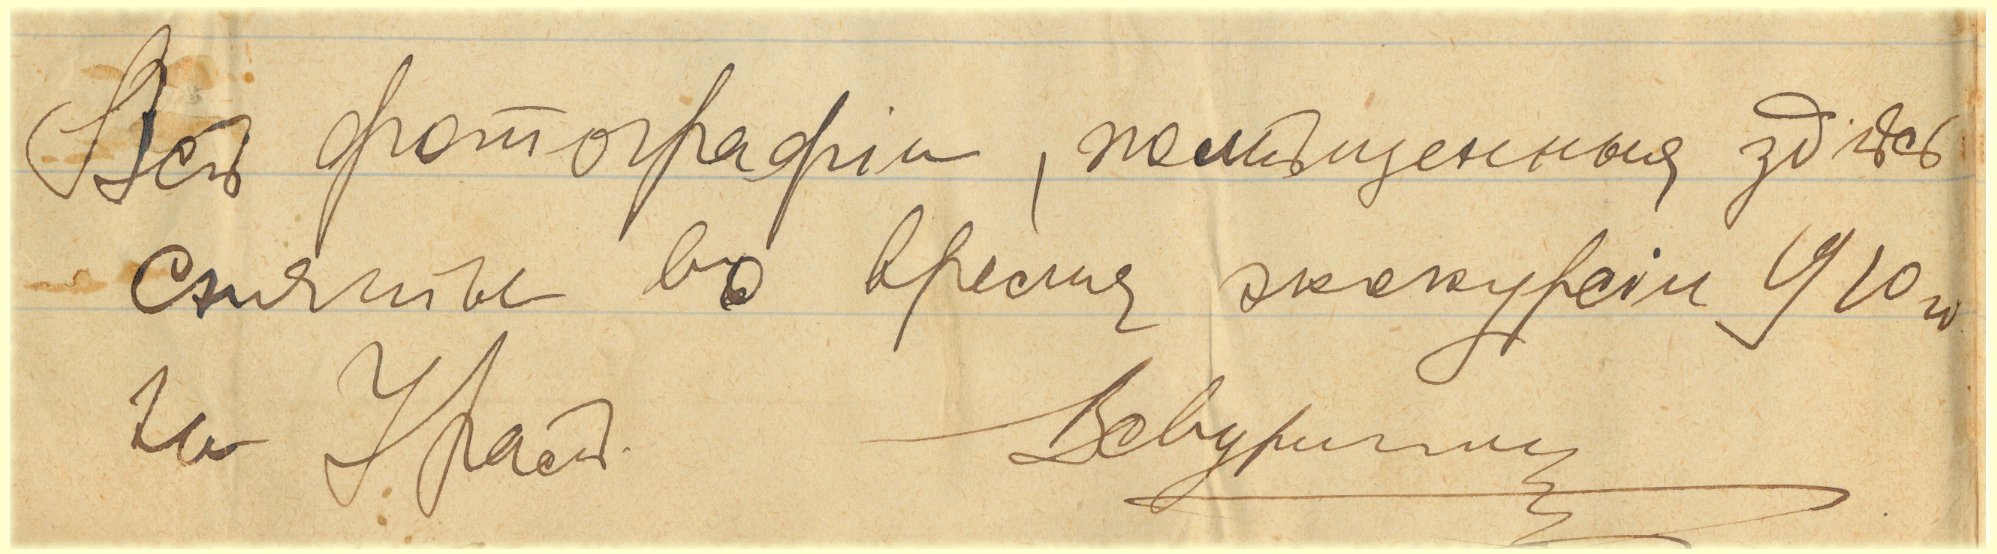 Всѣ фотографіи, помѣщенныя здѣсь
сняты во время экскурсіи 910 г.
на Уралѣ.